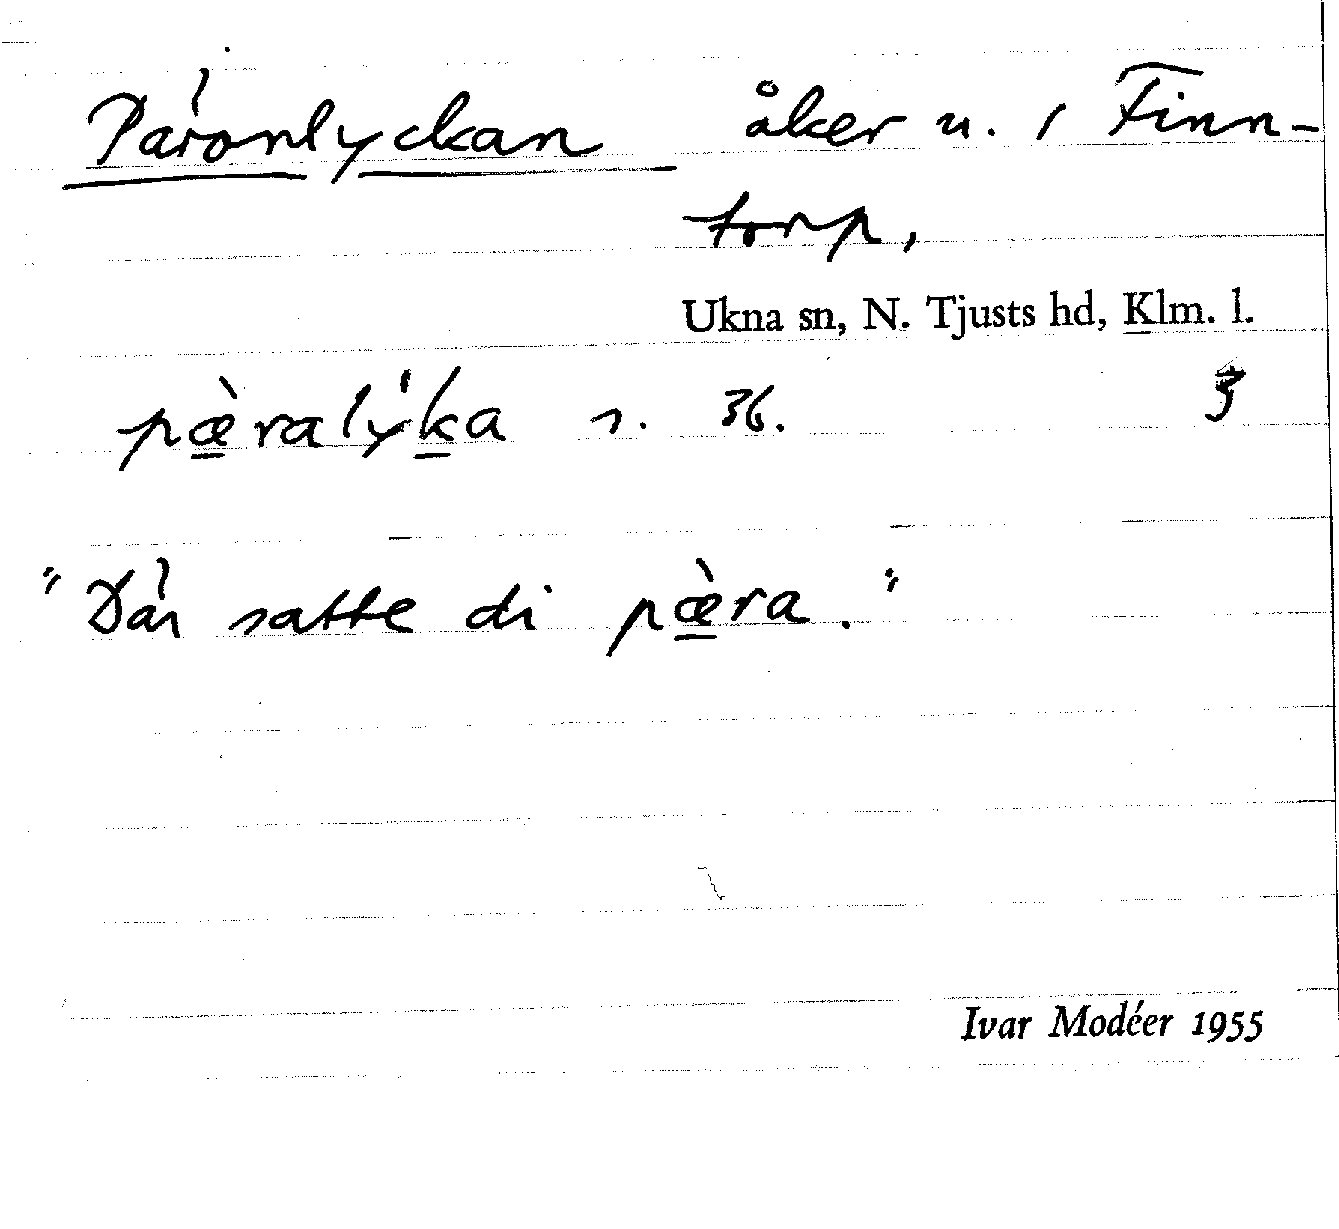 Päronlyckan åker u. 1 Finn-
torp,
Ukna sn, N. Tjusts hd, Klm. l.
pæ̀ralýka s. 36.
"Där satte di pæ̀ra."
Ivar Modéer 1955